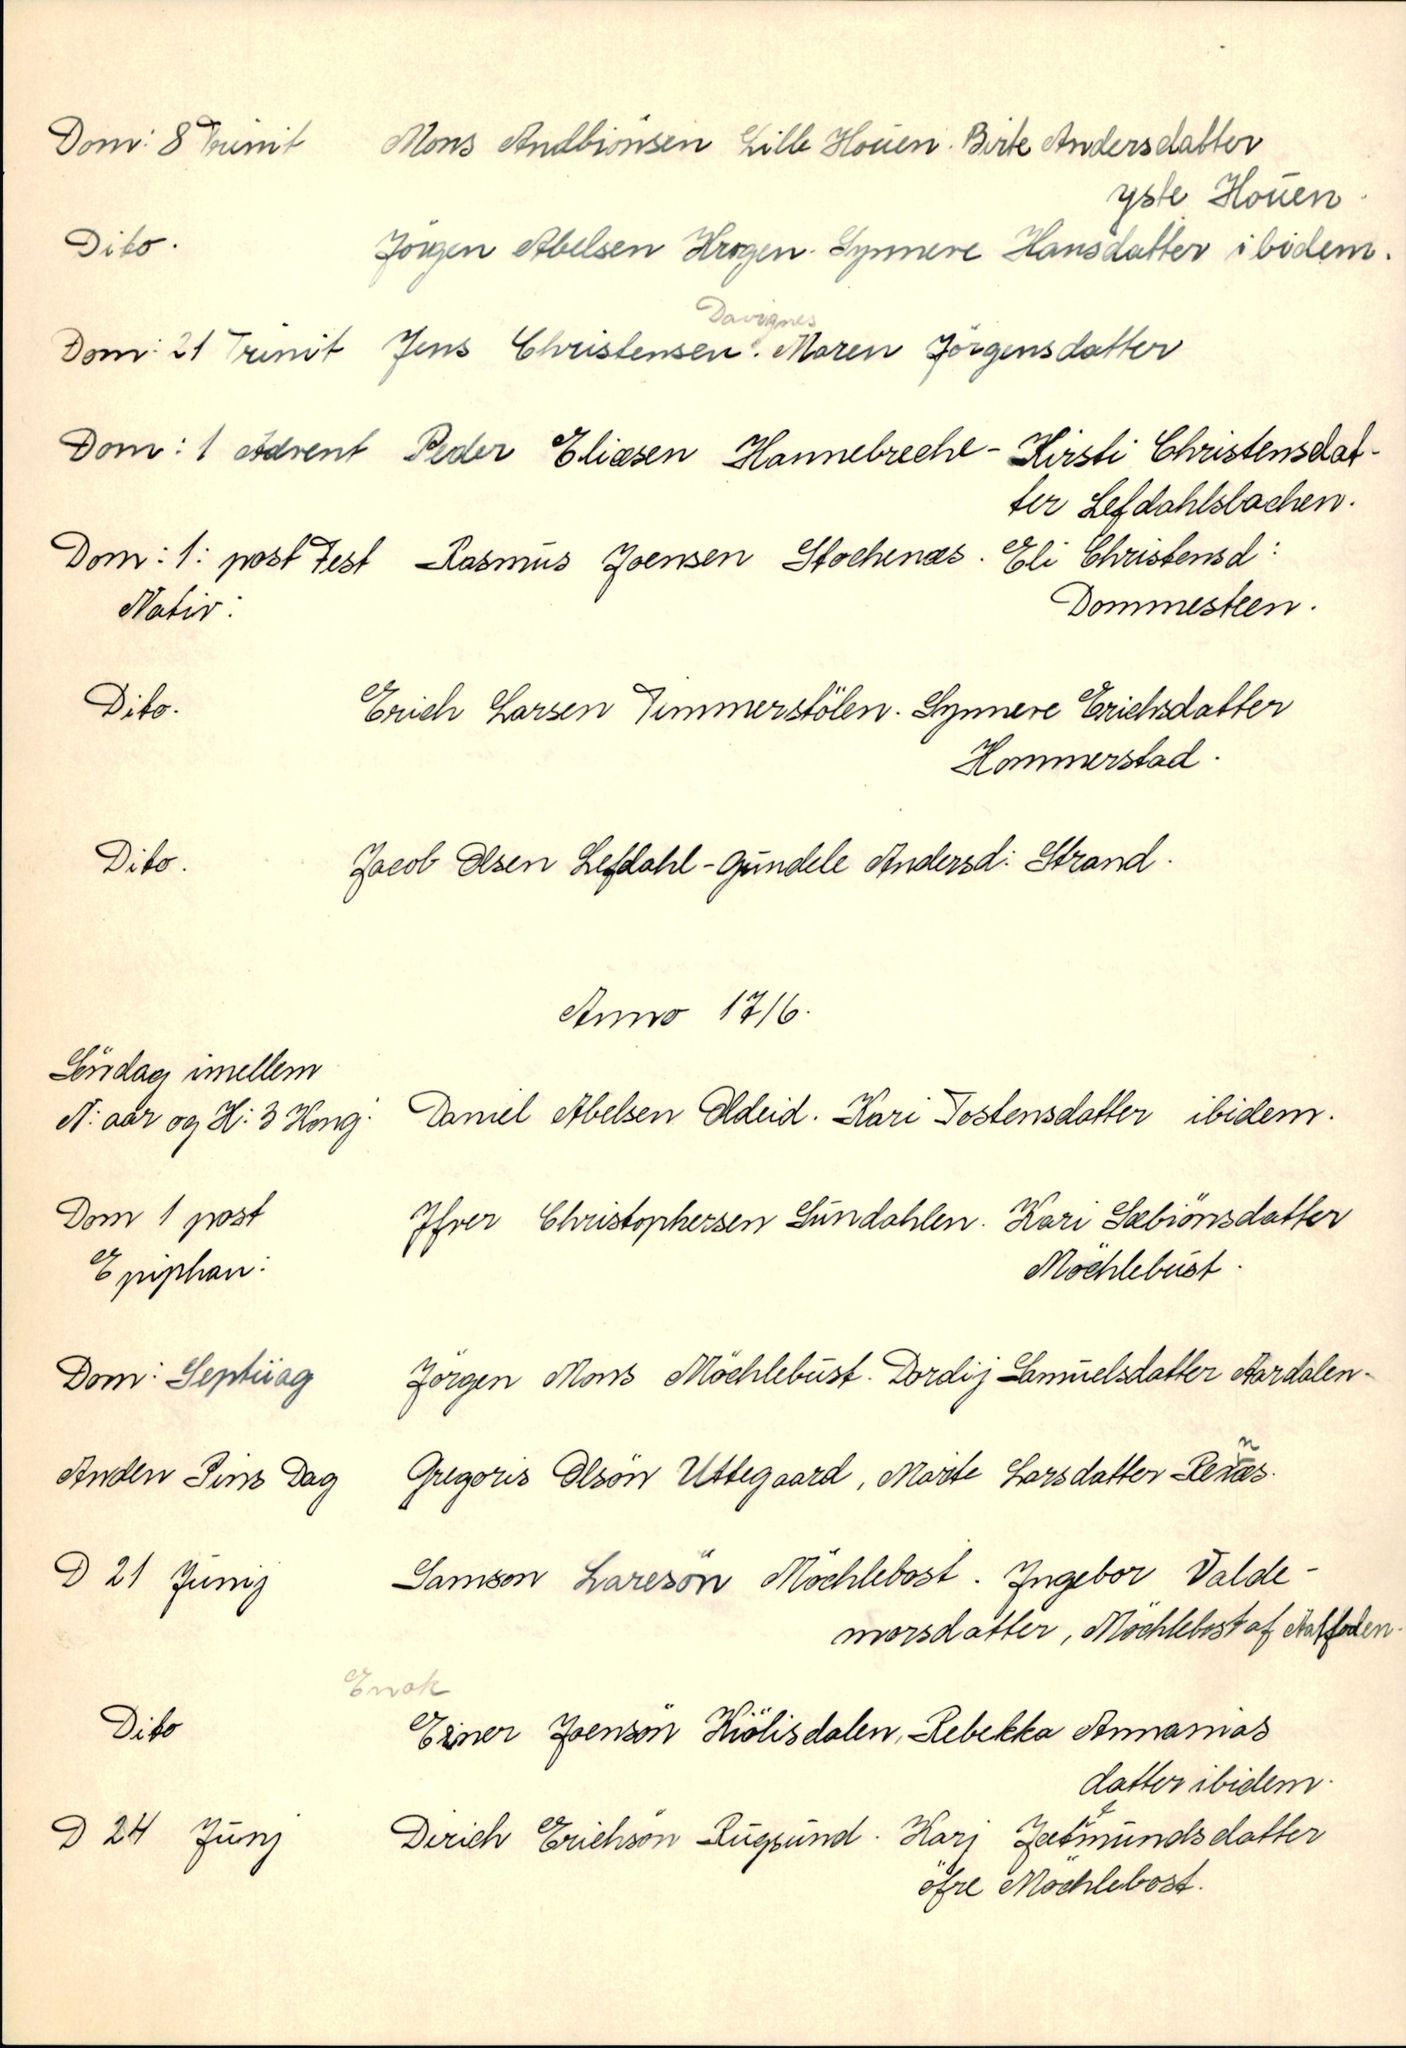 Dom: 8 Trinit Mons Andbiönsen Lille Houen. Birte Andersdatter
yste Houen.
Dito. Jörgen Abelsen Krogen. Synneve Hansdatter ibidem.
Davignes
Dom: 21 Trinit Jens Christensen. Maren Jörgensdatter
Dom: 1 Advent Peder Eliæsen Hannebreche - Kirsti Christensdat-
ter Lefdahlsbachen.
Dom: 1: post Fest Rasmus Joensen Stochenæs. Eli Christensd:
Nativ: Dommesteen.
Dito. Erich Larsen Timmerstölen. Synneve Erichsdatter
Hommerstad.
Dito. Jacob Olsen Lefdahl - Gundele Andersd: Strand.
Anno 1716.
Söndag imellem
N: aar og H: 3 Kong: Daniel Abelsen Oldeid. Kari Tostensdatter ibidem.
Dom 1 post Ifver Christophersen Sundahlen. Kari Sæbiönsdatter
Epiphan: Möchlebust.
Dom: Septuag Jörgen Mons Möchlebust. Dordij Samuelsdatter Aardalen-
n
Anden Pins Dag Gregoris Olsön Uttegaard, Marite Larsdatter
D 21 Junij Samson Laresön Möchlebost. Ingebor Valde-
morsdatter, Möchlebost af
Enok
Dito Einer Joensön Kiölisdalen, Rebekka Annanias
datter ibidem.
D 24 Junj Dirich Erichsön Rugsund. Karj Jetmundsdatter
öfre Möchlebost.